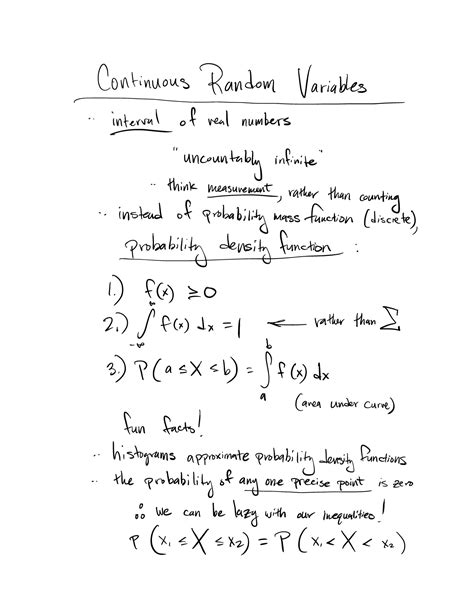 Continuous Random Variables
·· interval of real numbers
"uncountably infinite"
·· think measurement, rather than counting
·· instead of probability mass function (discrete),
probability density function :
1.) f(x) ≥ 0
2.) ∫_{-∞}^{∞} f(x) dx = 1 ← rather than Σ
3.) P(a ≤ X ≤ b) = ∫_{a}^{b} f(x) dx
(area under curve)
fun facts!
·· histograms approximate probability density functions
·· the probability of any one precise point is zero
∴ we can be lazy with our inequalities!
P (x₁ ≤ X ≤ x₂) = P (x₁ < X < x₂)